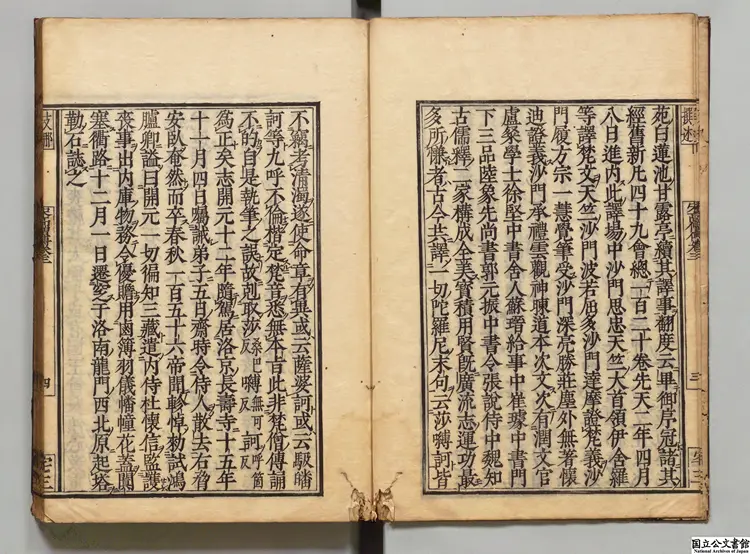 苑白蓮池甘露亭續其譯事翻度云畢御序冠諸其
經舊新凡四十九會總一百二十卷先天二年四月
八日進內此譯場中沙門思忠天竺大首領伊舍羅
等譯梵文天竺沙門波若屈多沙門達摩證梵義沙
門履方宗一慧覺筆受沙門深亮勝莊塵外無著懷
迪證義沙門承禮雲觀神暕道本次文次有潤文官
盧粲學士徐堅中書舍人蘇瑨給事中崔璩中書門
下三品陸象先尚書郭元振中書令張說侍中魏知
古儒釋二家構成全美寶積用賢既廣流志運功最
多所慊者古今共譯一切陀羅尼末句云莎嚩訶皆
不竊考清濁遂使命章有異或云薩婆訶或云馺皤
訶等九呼不倫楷定梵音悉無本旨此非梵僧傳誦
不的自是執筆之誤故剋取莎桑巴反嚩無可反訶呼箇反
為正矣志開元十二年隨駕居洛京長壽寺十五年
十一月四日囑誡弟子五日齋時令侍人散去右脅
安臥奄然而卒春秋一百五十六帝聞軫悼勅試鴻
臚卿諡曰開元一切徧知三藏遣內侍杜懷信監護
喪事出內庫物務令優贍用鹵簿羽儀幡幢花蓋闐
塞衢路十二月一日遷窆于洛南龍門西北原起塔
勒石誌之
四
国立公文書館
National Archives of Japan